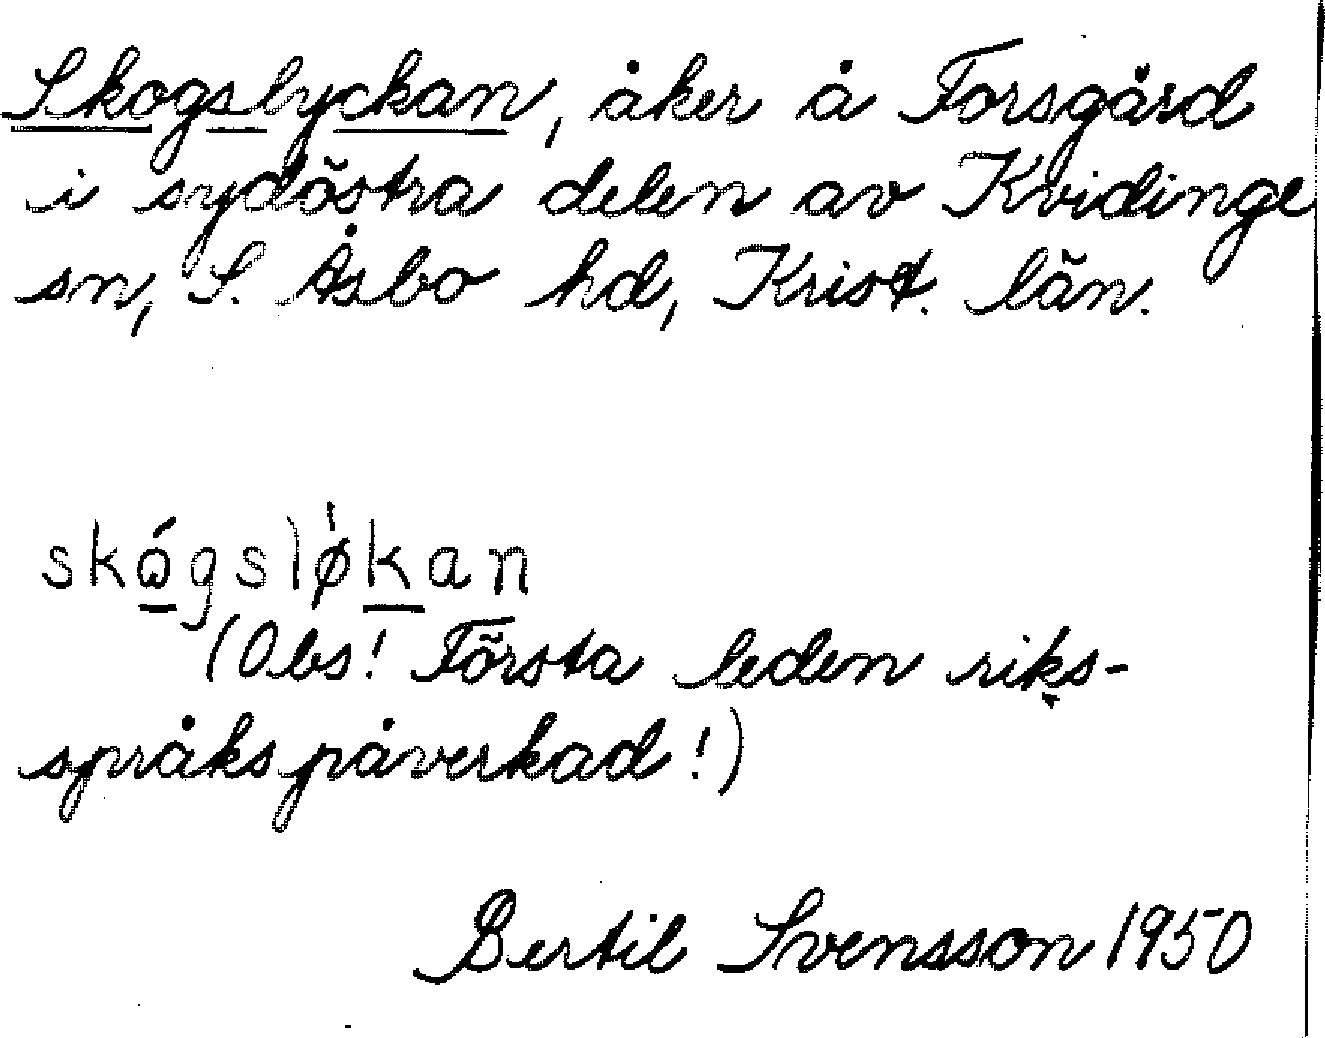 Skogslyckan, åker å Forsgård
i sydöstra delen av Kvidinge
sn, S. Åsbo hd, Krist. län.
skógsløkan
(Obs! Första leden riks-
språkspåverkad!)
Bertil Svensson 1950